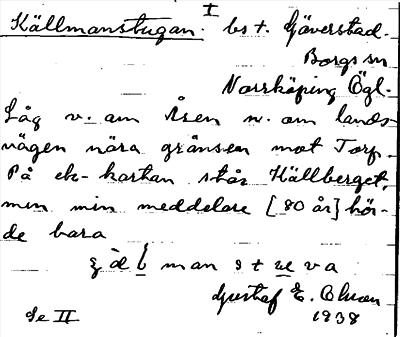 I
Källmanstugan. bs t. Gäverstad.
Borgs sn
Norrköping Ögl.
Låg v. om Åsen n. om lands-
vägen nära gränsen mot Torp.
På ek-kartan står Källberget,
men min meddelare [80 år] hör-
de bara
man
Gustaf E. Olson
1938
Se II